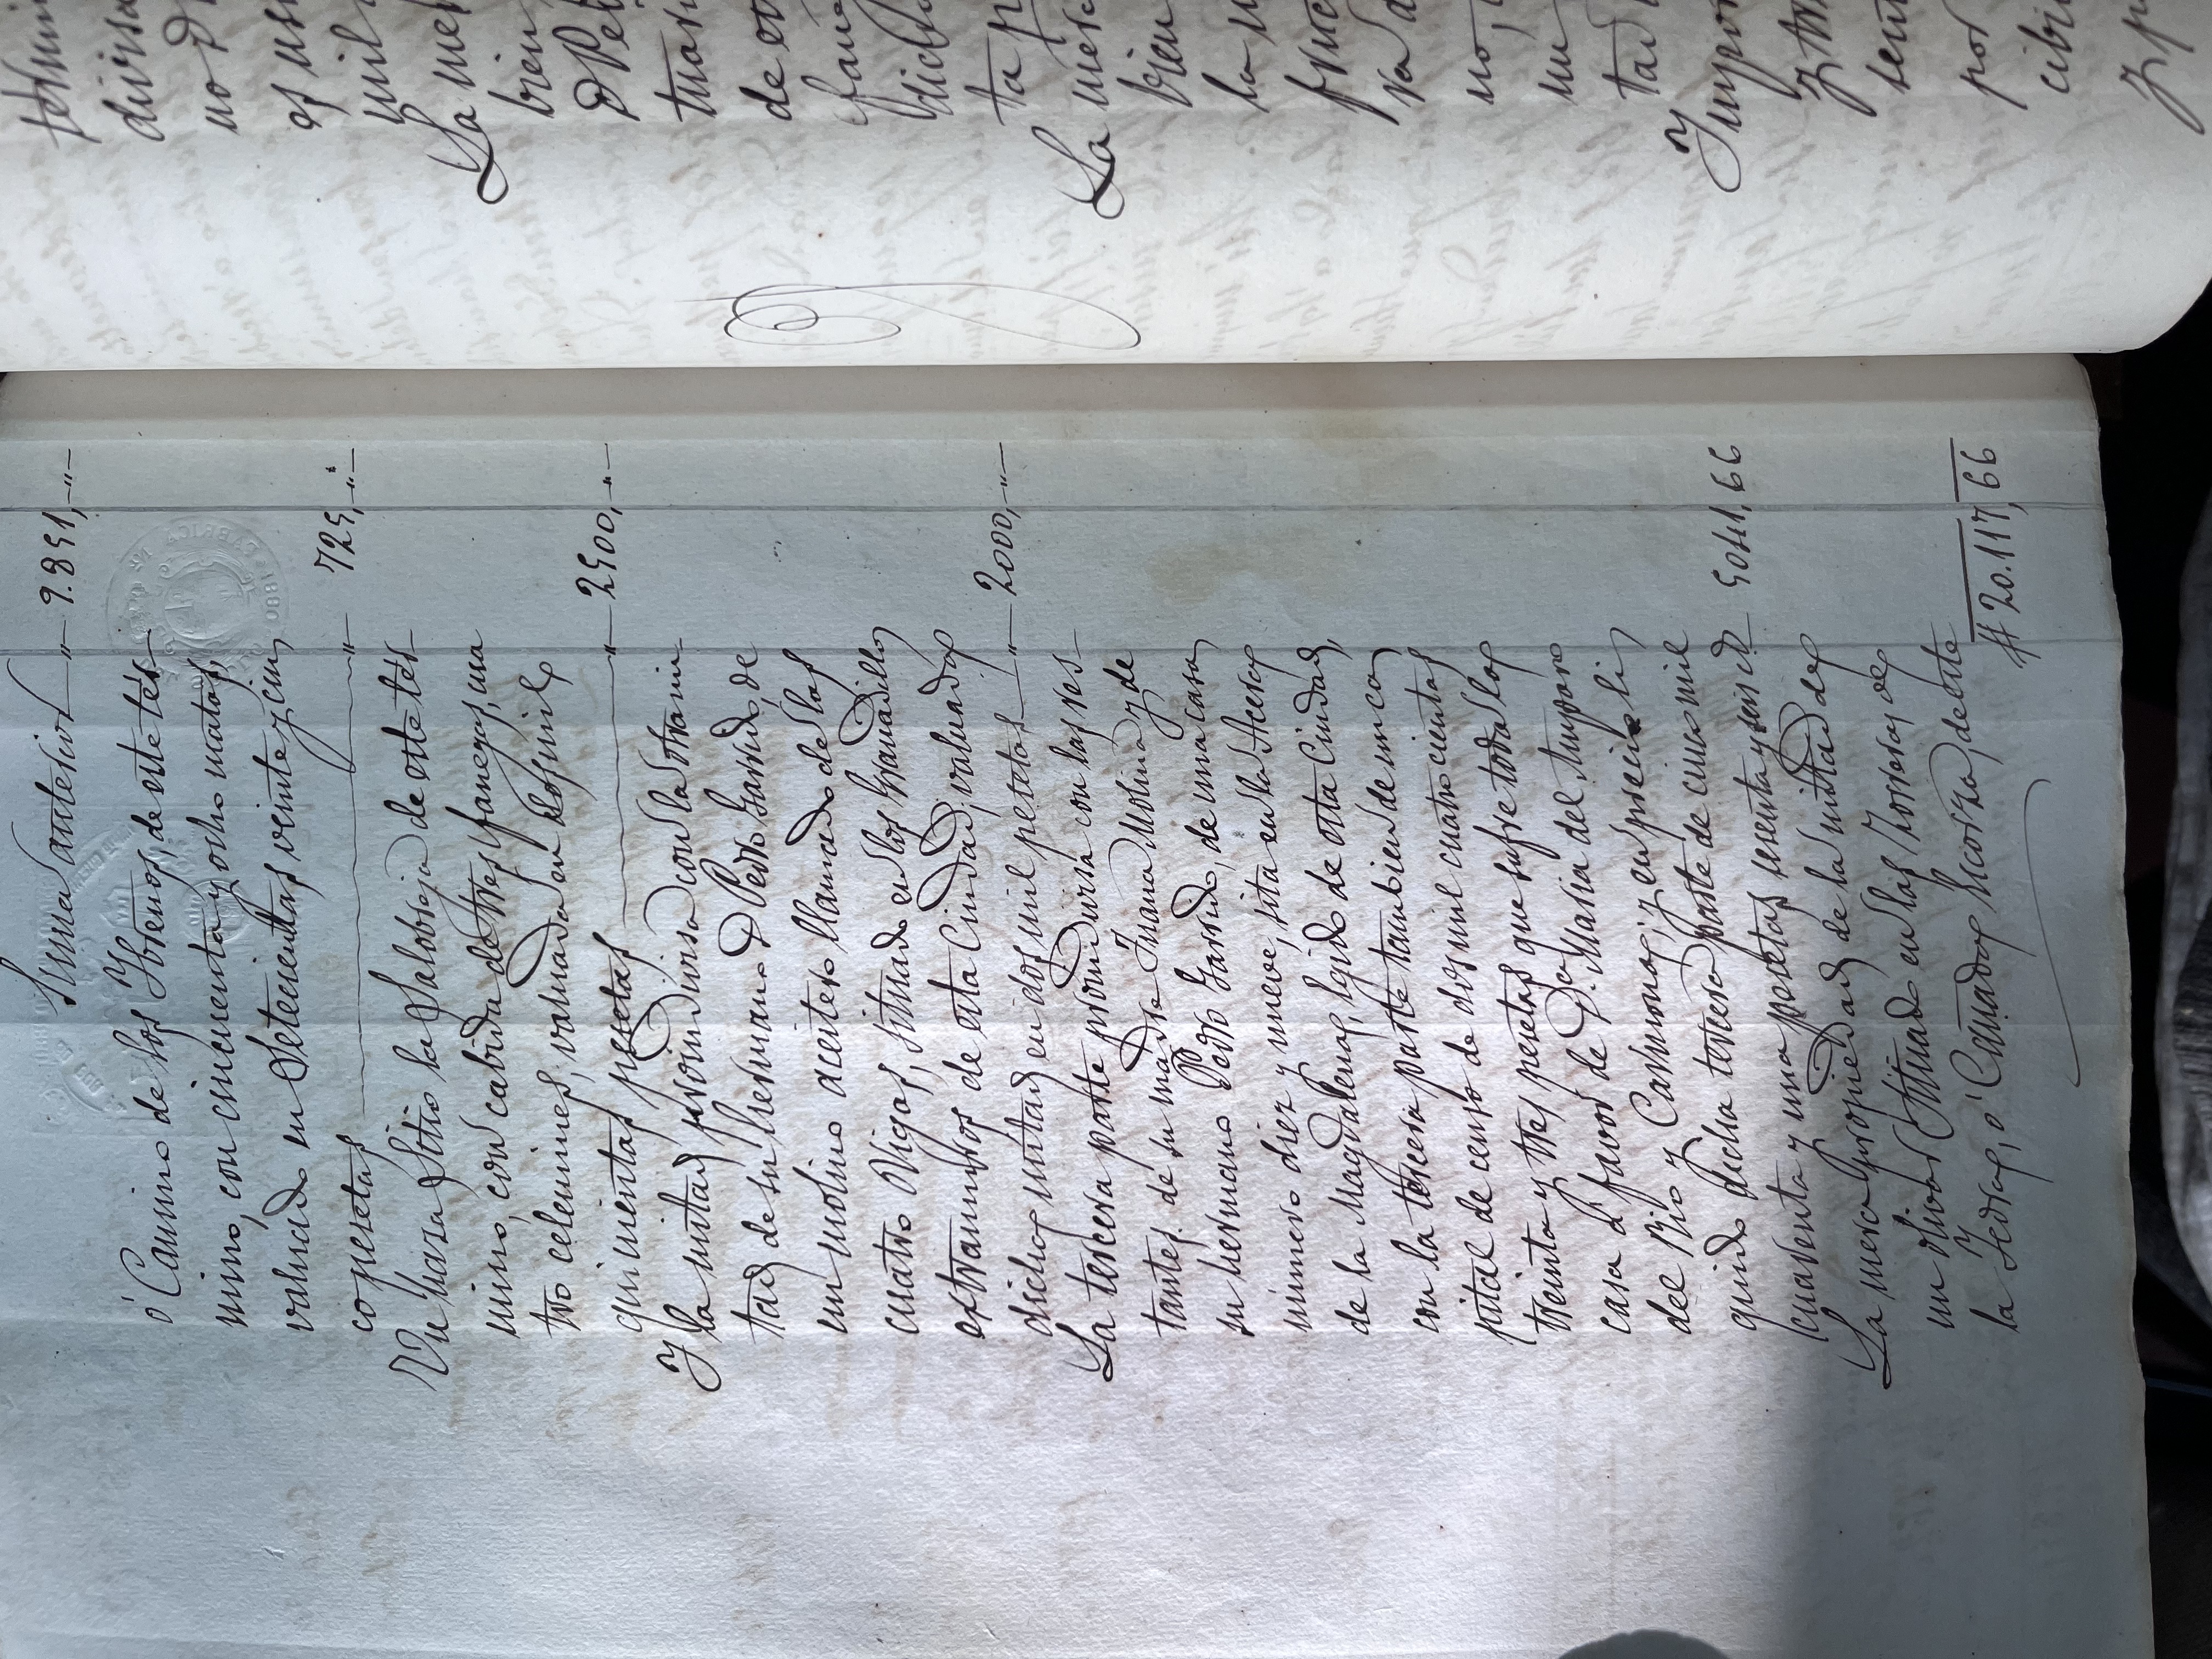 Suma anterior — " — 9.851, — " —
ó Camino de los Yhrenos, de este tér-
mino, con cincuenta y ocho matas,
valuado en setecientas veinte y cin-
co pesetas — " — 725, — " —
Un haza, Sitio la Salobreja de este tér-
mino, con cabida de tres fanegas, cua
tro celemines, valuada en dos mil
quinientas pesetas — " — 2500, — " —
Y la mitad proindivisa con la otra mi-
tad de su hermano D Pedro Garrido, de
un molino aceitero llamado de las
cuatro Vigas, situado en los Granadillos
extramuros de esta Ciudad, valuada
dicha mitad en dos mil pesetas — " — 2000, — " —
La tercera parte proindivisa con las res-
tantes de su madre Juana Molina y de
su hermano Pedro Garrido, de una casa
número diez y nueve, sita en la Acera
de la Magdalena, egido de esta Ciudad,
con la tercera parte tambien de un ca-
pital de censo de dos mil cuatrocientas
treinta y tres pesetas que sufre toda la
casa á favor de D.ª Maria del Amparo
del Rio y Carmona; y en precio li-
quido dicha tercera parte de cinco mil
cuarenta y una pesetas sesenta y seis c.s 5041,66
La mera propiedad de la mitad de
un olivar situado en las Torres, de
la Yedra, ó Cañada Acorza, de este
# 20.117,66
termin
divisa
no D
os usu
mil
La mer
bien
D Pe
tuari
de es
fane
ta p
La mera
bien
la m
fruc
no,
tad
Impor
y tre
sent
por
cibi
y p